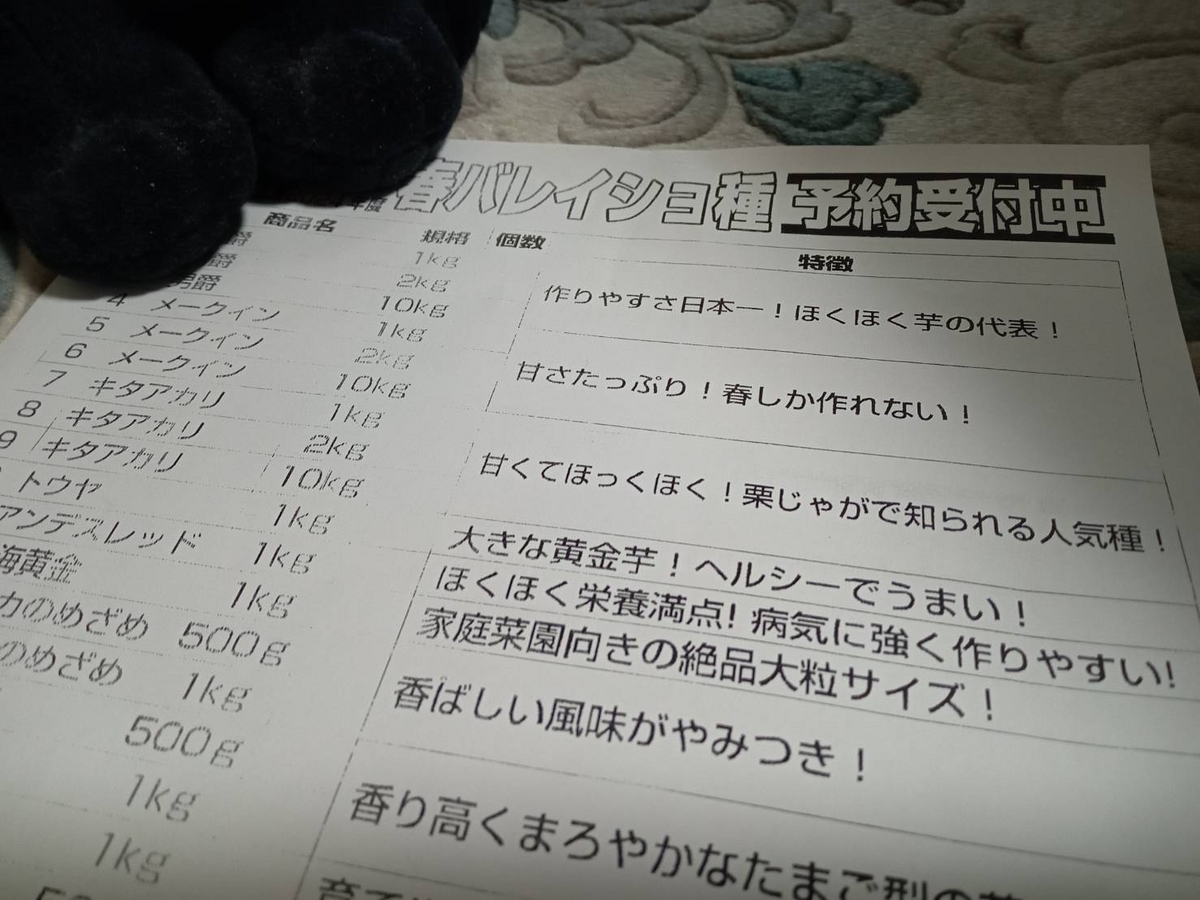 年度 春バレイショ種 予約受付中
商品名 規格 個数 特徴
爵 1kg
爵 2kg
男爵 10kg
作りやすさ日本一！ほくほく芋の代表！
4 メークイン 1kg
5 メークイン 2kg
6 メークイン 10kg
甘さたっぷり！春しか作れない！
7 キタアカリ 1kg
8 キタアカリ 2kg
9 キタアカリ 10kg
甘くてほっくほく！栗じゃがで知られる人気種！
トウヤ 1kg 大きな黄金芋！ヘルシーでうまい！
アンデスレッド 1kg ほくほく栄養満点! 病気に強く作りやすい!
海黄金 1kg 家庭菜園向きの絶品大粒サイズ！
カのめざめ 500g
のめざめ 1kg
香ばしい風味がやみつき！
500g
1kg
香り高くまろやかなたまご型の
1kg